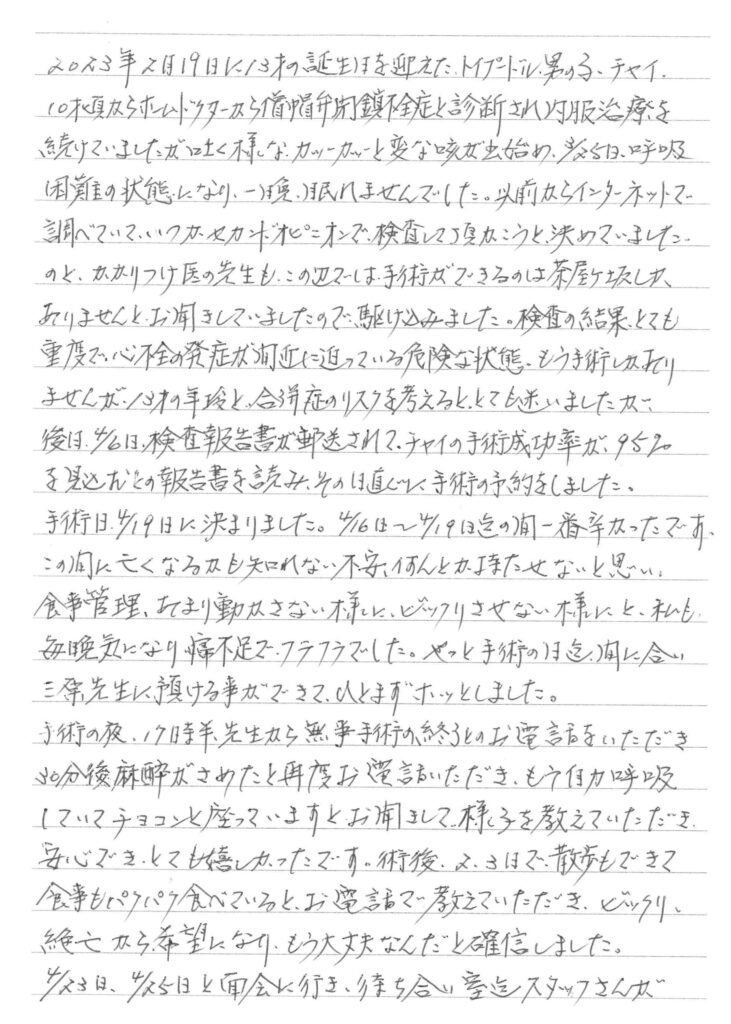 2023年2月19日に13才の誕生日を迎えた、トイプードル、男の子、チャイ、
10才頃からホームドクターから僧帽弁閉鎖不全症と診断され内服治療を
続けていましたが吐く様な、カッーカッーと変な咳が出始め、3/25日、呼吸
困難の状態になり、一晩、眠れませんでした。以前からインターネットで
調べていて、いつかセカンドオピニオンで、検査して頂かこうと、決めていました。
のと、かかりつけ医の先生も、この辺では、手術ができるのは茶屋ヶ坂しか、
ありませんと、お聞きしていましたので、駆け込みました。検査の結果、とても
重度で、心不全の発症が間近に迫っている危険な状態、もう手術しかあり
ませんが、13才の年玲と、合併症のリスクを考えると、とても迷いましたが、
後日、4/6日、検査報告書が郵送されて、チャイの手術成功率が、95%
を見込むとの報告書を読み、その日直ぐに、手術の予約をしました。
手術日、4/19日に決まりました。4/16日〜4/19日迄の間一番辛かったです、
この間に亡くなるかも知れない不安、何んとか、持たせないと思い、
食事管理、あまり動かさない様に、ビックリさせない様にと、私も、
毎晩気になり寝不足で、フラフラでした。やっと手術の日迄、間に合い
三原先生に預ける事ができて、ひとまずホッとしました。
手術の夜、17時半、先生から無事手術の終了とのお電話をいただき
30分後麻酔がさめたと再度お電話いただき、もう自力呼吸
していてチョコンと座っていますと、お聞きして、様子を教えていただき、
安心でき、とても嬉しかったです。術後、2、3日で、散歩もできて
食事もパクパク食べていると、お電話で教えていただき、ビックリ、
絶亡から希望になり、もう大丈夫なんだと確信しました。
4/23日、4/25日と面会に行き、待ち合い室迄スタッフさんが